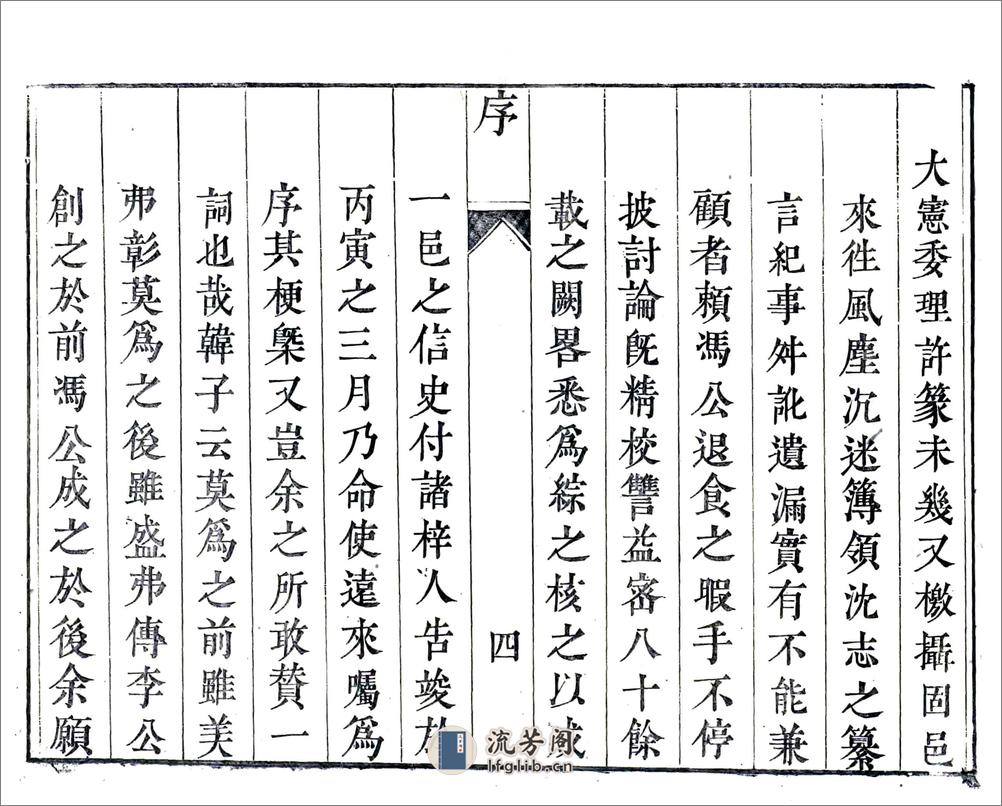 大憲委理許篆未幾又檄攝固邑
來徃風塵沉迷簿領沈志之纂
言紀事舛訛遺漏實有不能兼
顧者頼馮公退食之暇手不停
披討論旣精校讐益密八十餘
載之闕畧悉爲綜之核之以成
序
四
一邑之信史付諸梓人告竣於
丙寅之三月乃命使遠來囑爲
序其梗槩又豈余之所敢賛一
詞也哉韓子云莫爲之前雖美
弗彰莫爲之後雖盛弗傳李公
創之於前馮公成之於後余願
流芳阁
lfglib.cn